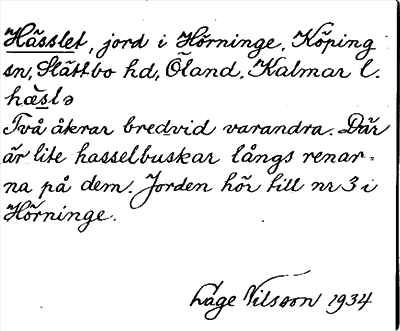 Hässlet, jord i Hörninge, Köping
sn, Slättbo hd, Öland, Kalmar l.
hæslə
Två åkrar bredvid varandra. Där
är lite hasselbuskar långs renar-
na på dem. Jorden hör till nr 3 i
Hörninge.
Låge Nilsson 1934